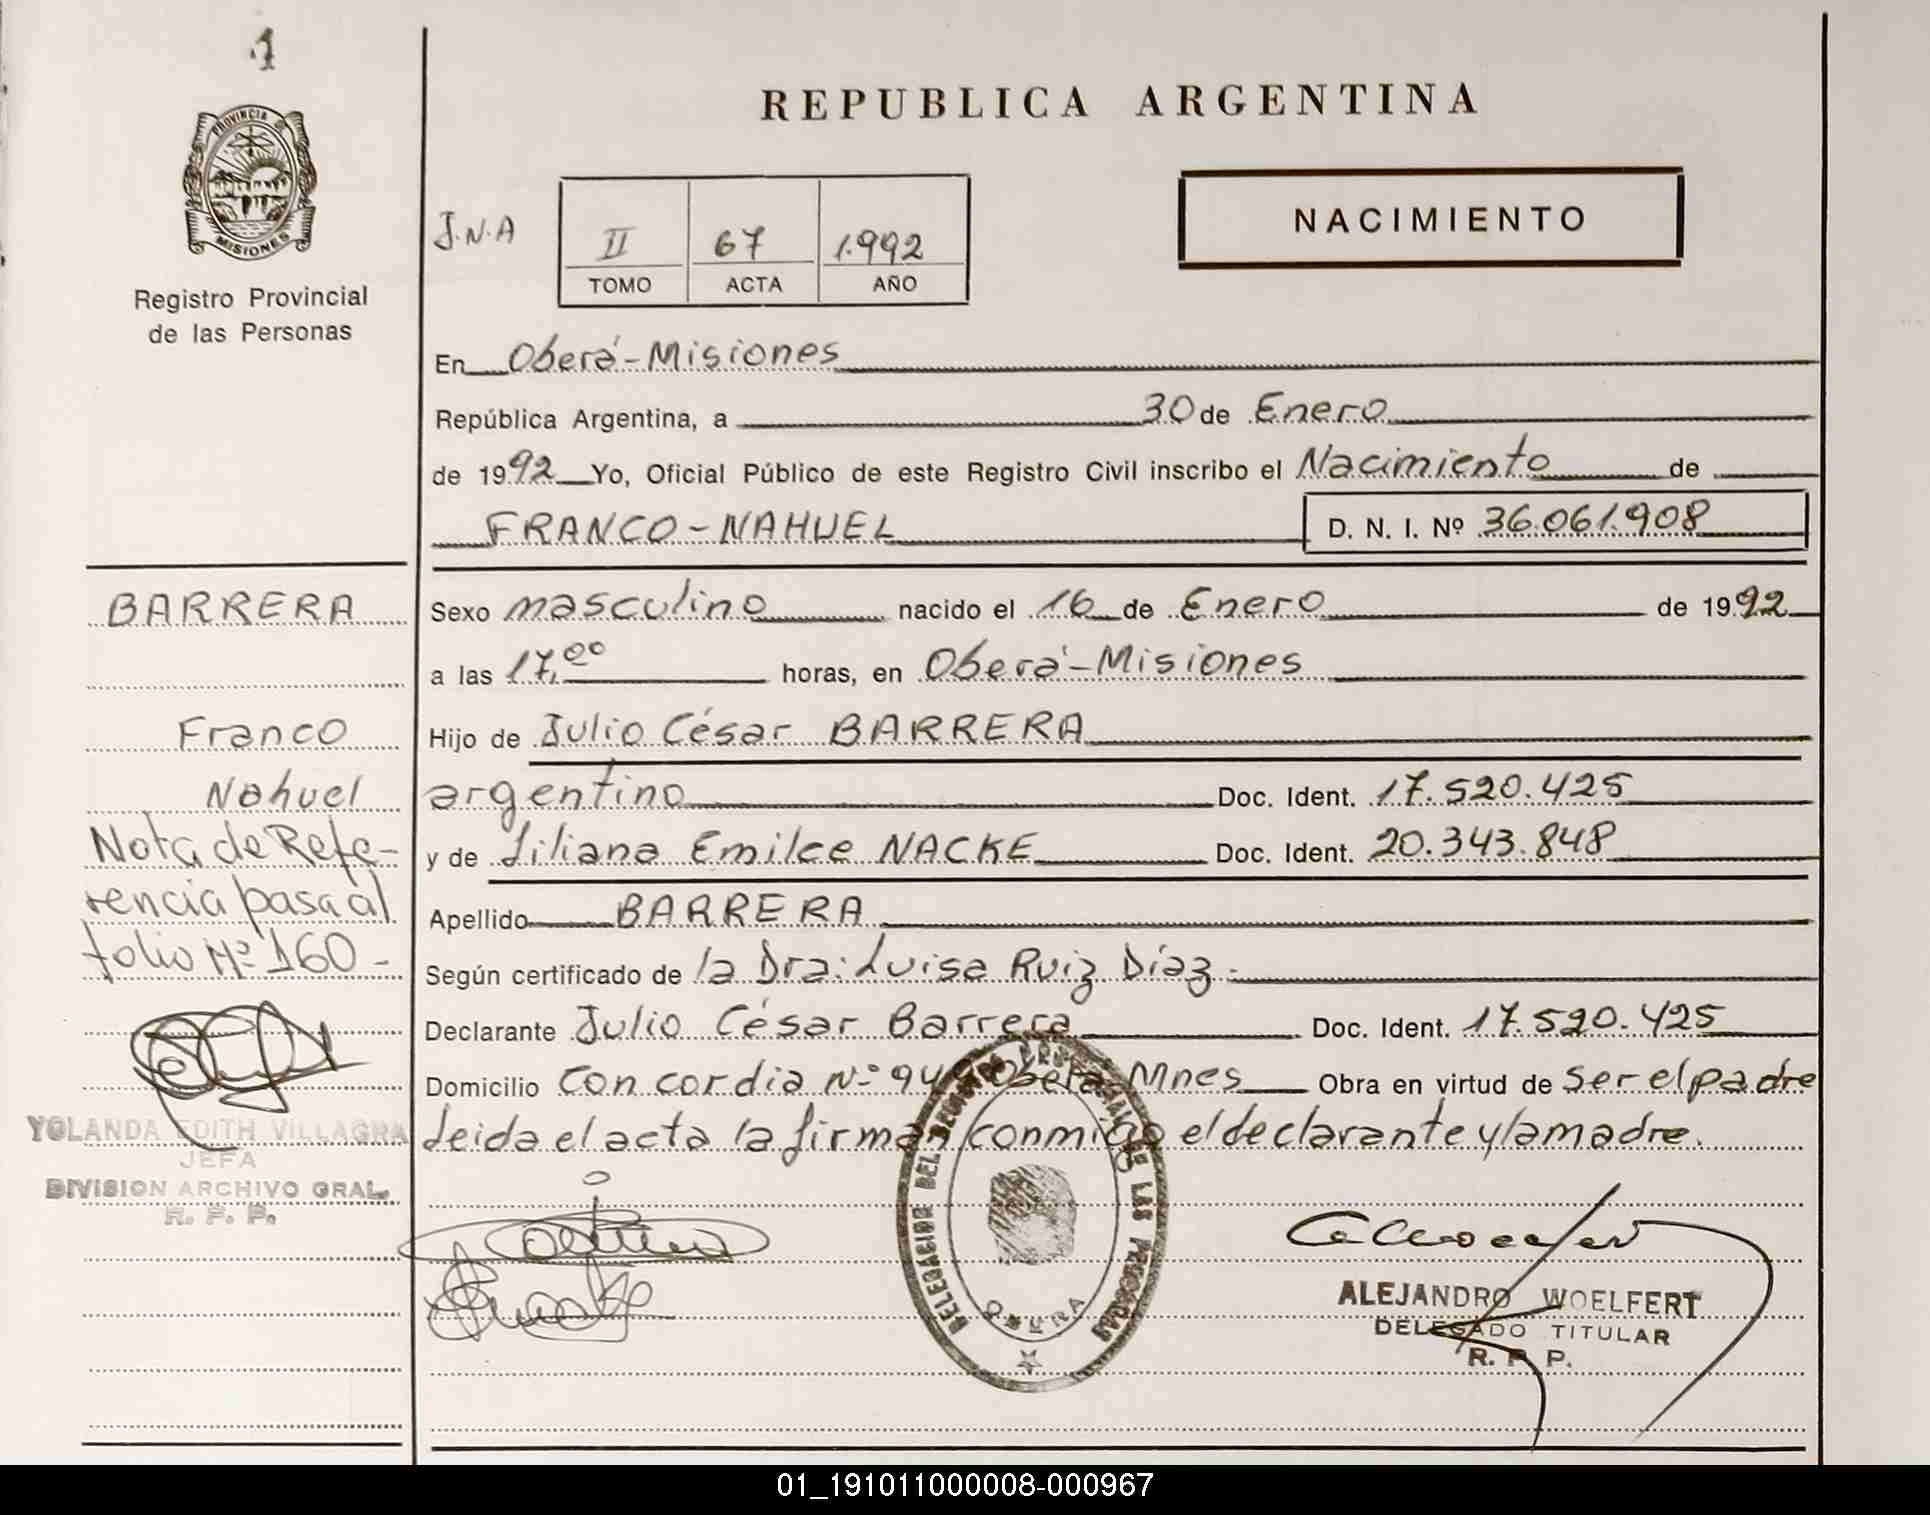 1
PROVINCIA DE
MISIONES
Registro Provincial
de las Personas
REPUBLICA ARGENTINA
NACIMIENTO
J.N.A
II 67 1.992
TOMO ACTA AÑO
En Oberá-Misiones
República Argentina, a 30 de Enero
de 1992 Yo, Oficial Público de este Registro Civil inscribo el Nacimiento de
FRANCO-NAHUEL D. N. I. Nº 36.061.908
BARRERA
Franco
Nahuel
Nota de Refe-
rencia pasa al
folio Nº 160-
YOLANDA EDITH VILLAGRA
JEFA
DIVISION ARCHIVO GRAL.
R. P. P.
Sexo masculino nacido el 16 de Enero de 1992
a las 17,00 horas, en Oberá-Misiones
Hijo de Julio César BARRERA
argentino Doc. Ident. 17.520.425
y de Liliana Emilce NACKE Doc. Ident. 20.343.848
Apellido BARRERA
Según certificado de la Dra: Luisa Ruiz Díaz-
Declarante Julio César Barrera Doc. Ident. 17.520.425
Domicilio Concordia Nº Oberá-Mnes Obra en virtud de Ser el padre
Leida el acta la firman conmigo el declarante y la madre.
DELEGACION DEL REGISTRO PROVINCIAL DE LAS PERSONAS
OBERA
ALEJANDRO WOELFERT
DELEGADO TITULAR
R. P. P.
01_191011000008-000967